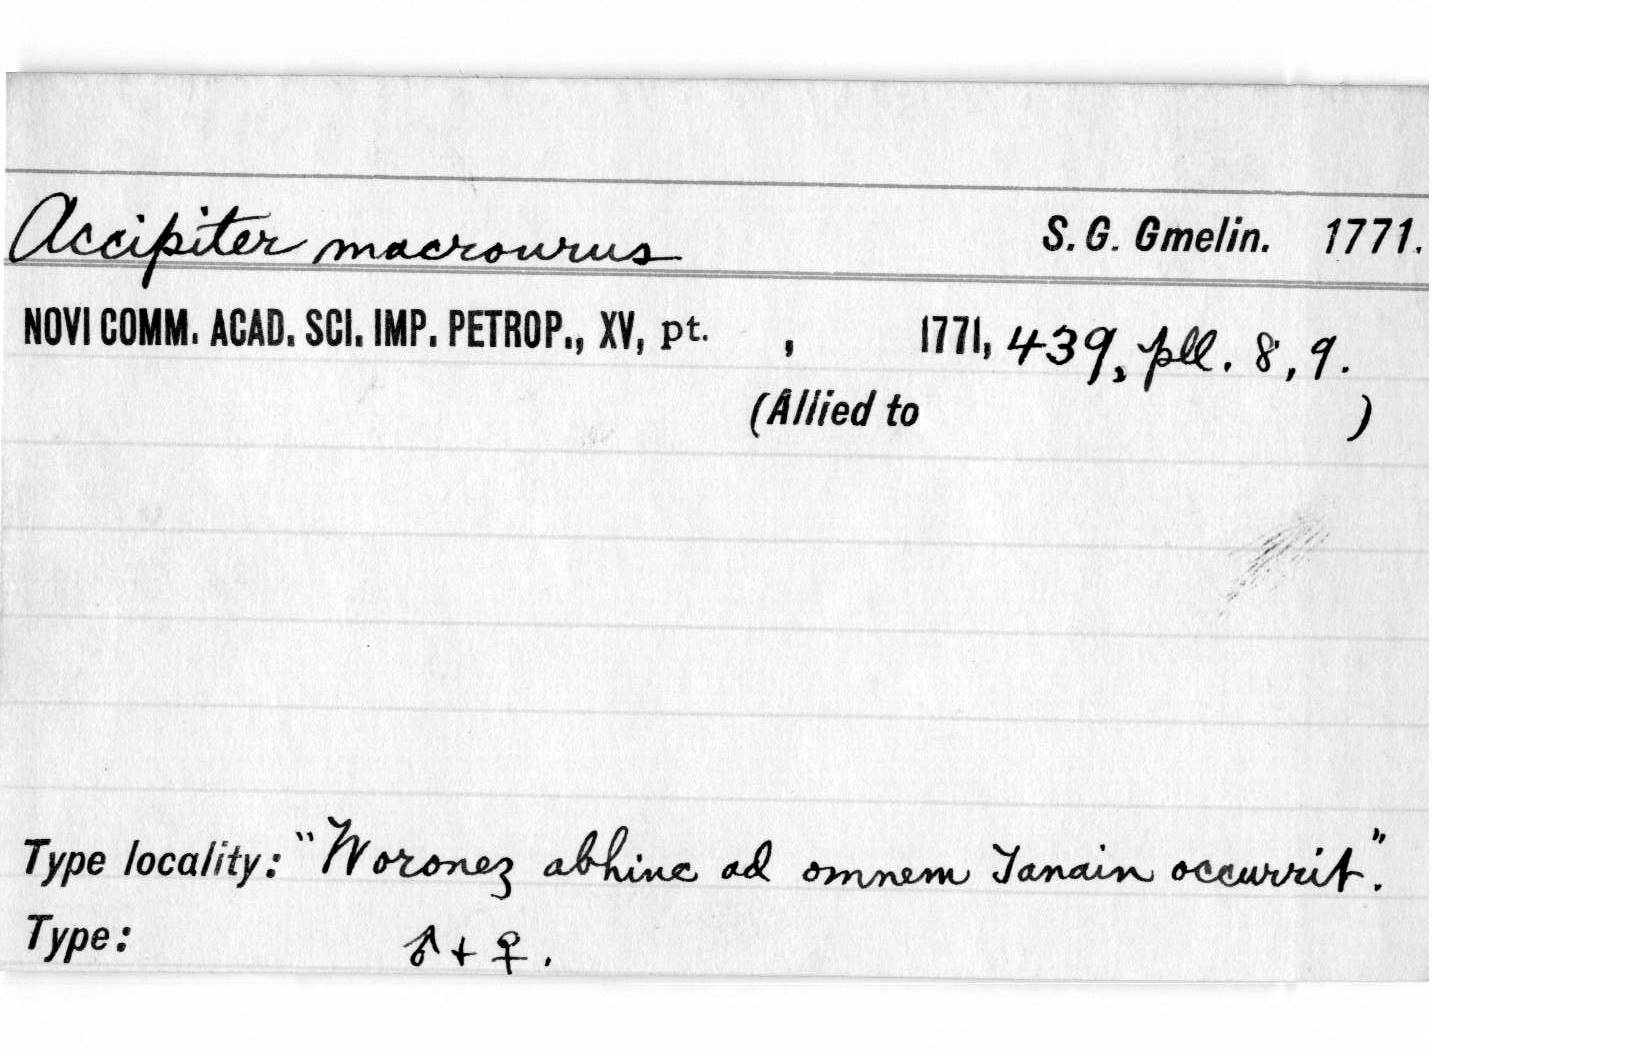 Accipiter macrourus S. G. Gmelin. 1771.
NOVI COMM. ACAD. SCI. IMP. PETROP., XV, pt. , 1771, 439, pll. 8, 9.
(Allied to )
Type locality: "Woronez abhinc ad omnem Tanain occurrit."
Type: ♂ + ♀.